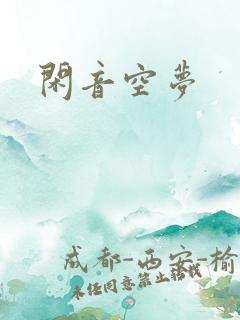 閑音空夢
成都-西安-榆
未经同意禁止转载